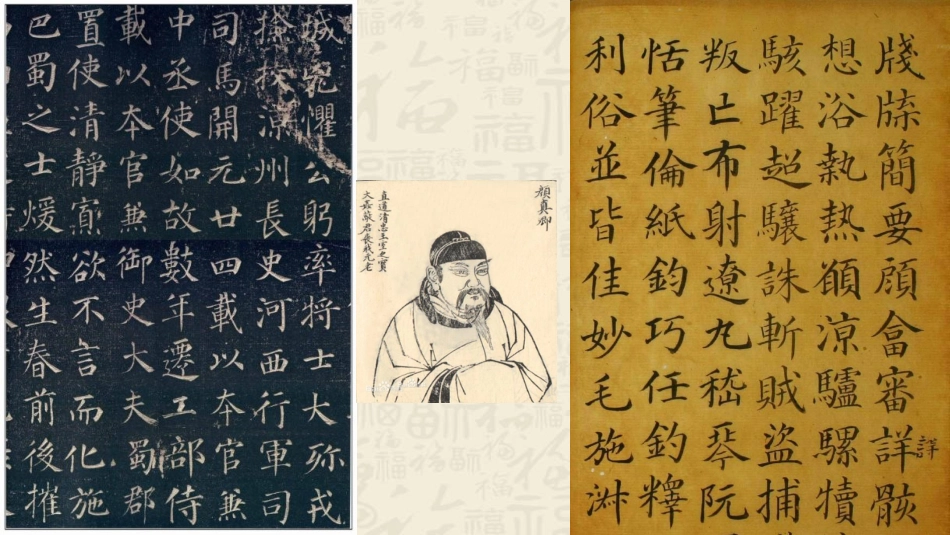 城懼公躬率將士大殄戎
涼州長史河西行軍司
司馬開元廿四載以本官兼
中丞使如故數年遷工部侍
載以本官兼御史大夫蜀郡
置使清靜寡欲不言而化施
巴蜀之士煖然生春前後摧
顏真卿
直道清忠王室之寶
君元老
牋牒簡要顧畣審詳骸
詳
想浴執熱願涼驢騾犢
駭躍超驤誅斬賊盜捕
叛亡布射遼丸嵇琴阮
恬筆倫紙鈞巧任釣釋
利俗並皆佳妙毛施淑